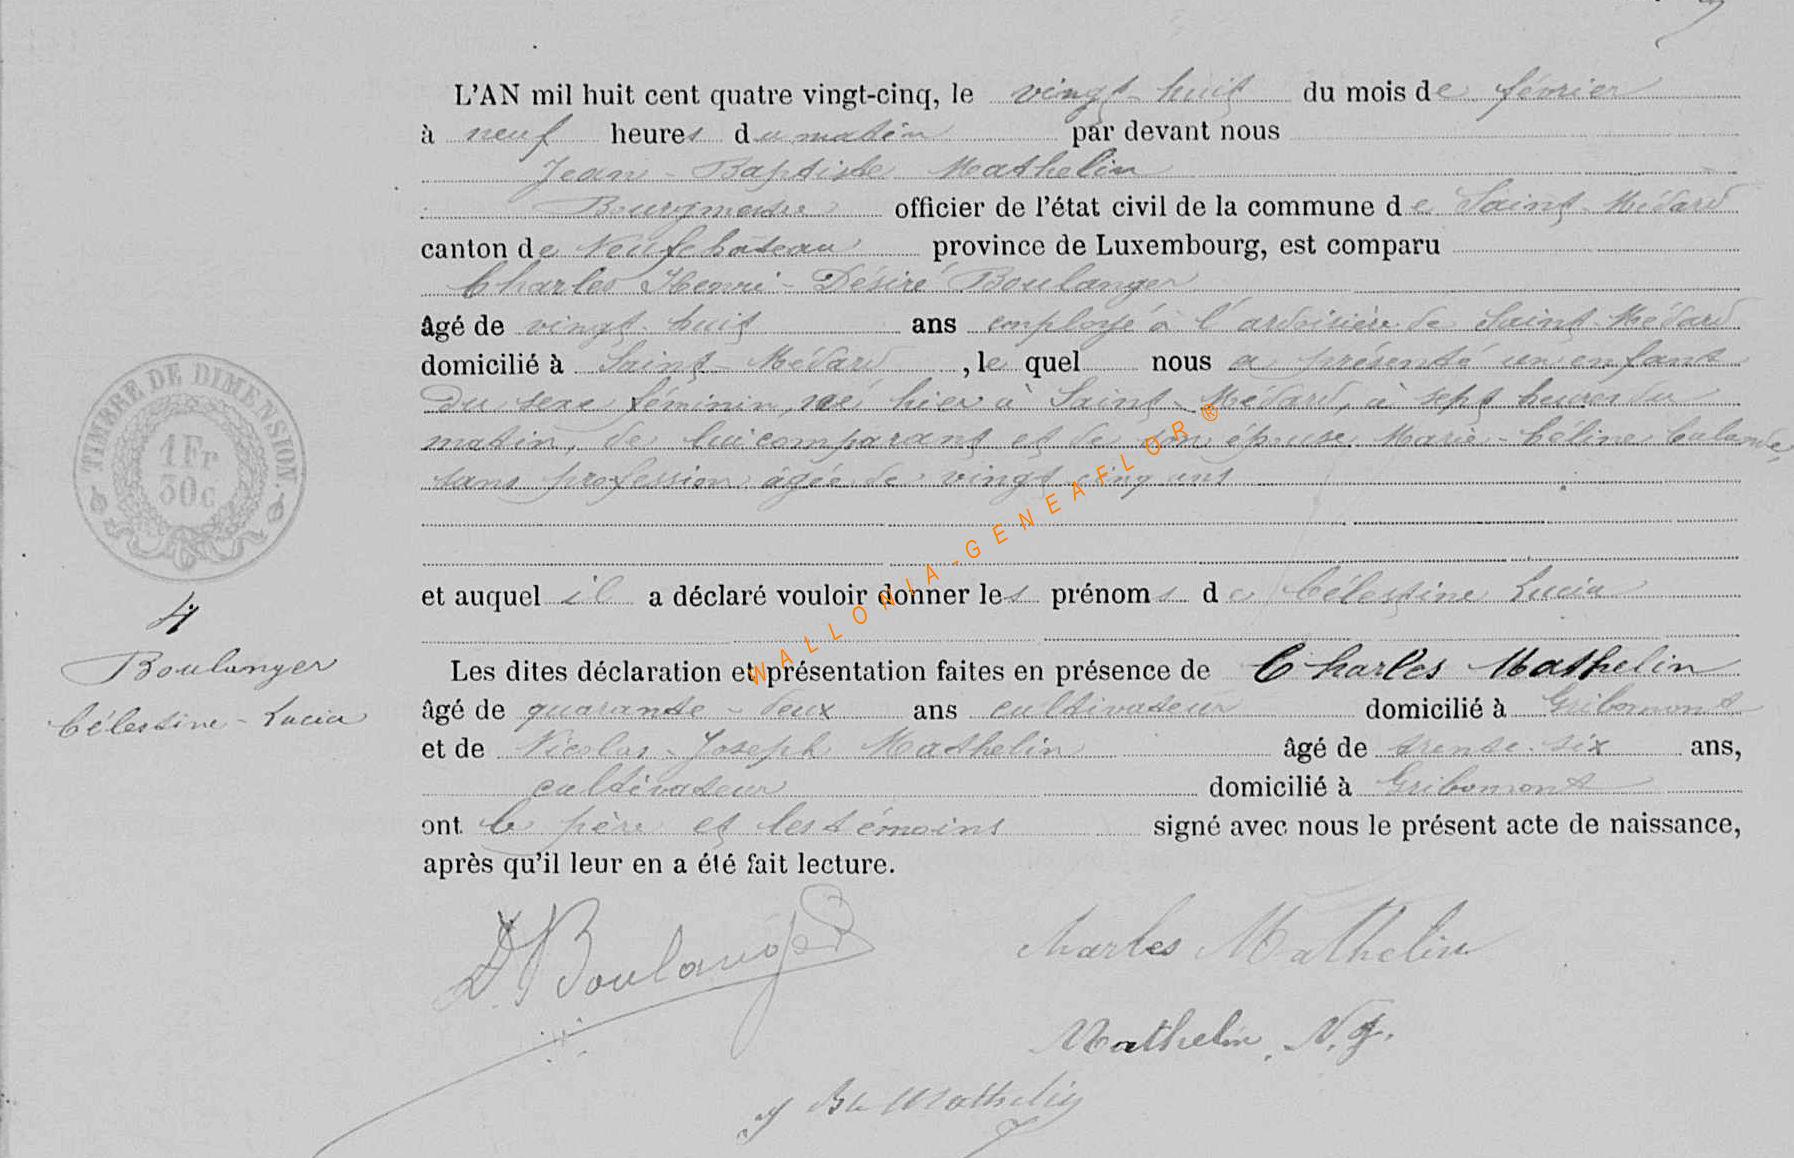 L'AN mil huit cent quatre vingt-cinq, le vingt-huit du mois de février
à neuf heures du matin par devant nous
Jean-Baptiste Mathelin
Bourgmestre officier de l'état civil de la commune de Saint-Médard
canton de Neufchâteau province de Luxembourg, est comparu
Charles Henri-Désiré Boulanger
âgé de vingt-huit ans employé à l'ardoisière de Saint-Médard
domicilié à Saint-Médard, le quel nous a présenté un enfant
du sexe féminin, né hier à Saint-Médard, à sept heures du
matin, de lui comparant et de son épouse Marie-Céline
sans profession âgée de vingt cinq ans
et auquel il a déclaré vouloir donner les prénoms de Célestine Lucia
Les dites déclaration et présentation faites en présence de Charles Mathelin
âgé de quarante-deux ans cultivateur domicilié à Gribomont
et de Nicolas-Joseph Mathelin âgé de trente-six ans,
cultivateur domicilié à Gribomont
ont le père et les témoins signé avec nous le présent acte de naissance,
après qu'il leur en a été fait lecture.
TIMBRE DE DIMENSION.
1 Fr
30c
4
Boulanger
Célestine-Lucia
D Boulanger
Charles Mathelin
Mathelin, N.J.
J Bte Mathelin
WALLONIA-GENEAFLOR®